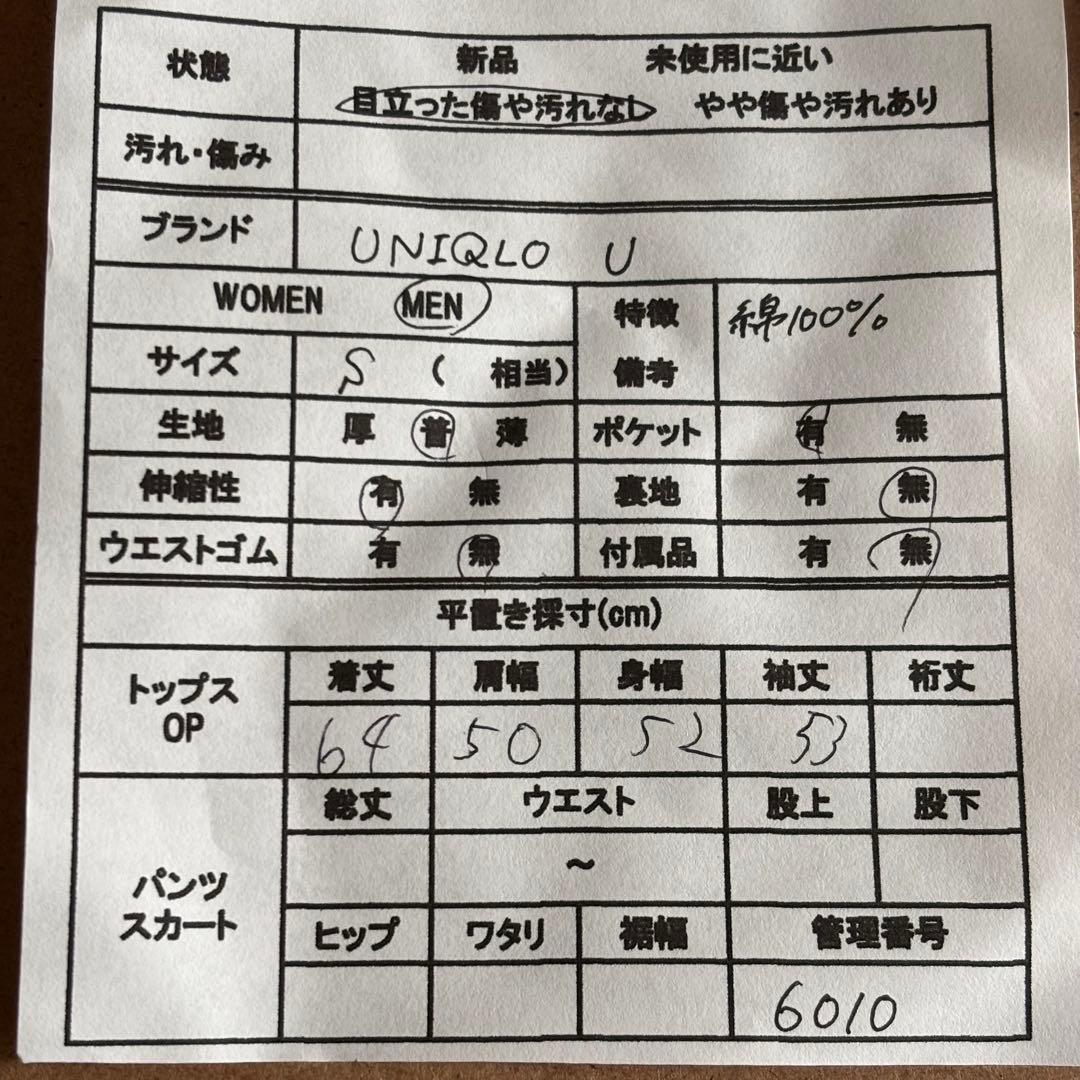 状態 新品 未使用に近い
目立った傷や汚れなし やや傷や汚れあり
汚れ・傷み
ブランド UNIQLO U
WOMEN MEN 特徴 綿100%
サイズ S ( 相当) 備考
生地 厚 普 薄 ポケット 有 無
伸縮性 有 無 裏地 有 無
ウエストゴム 有 無 付属品 有 無
平置き採寸(cm)
トップス 着丈 肩幅 身幅 袖丈 裄丈
OP 64 50 52 53
総丈 ウエスト 股上 股下
~
パンツ
スカート ヒップ ワタリ 裾幅 管理番号
6010